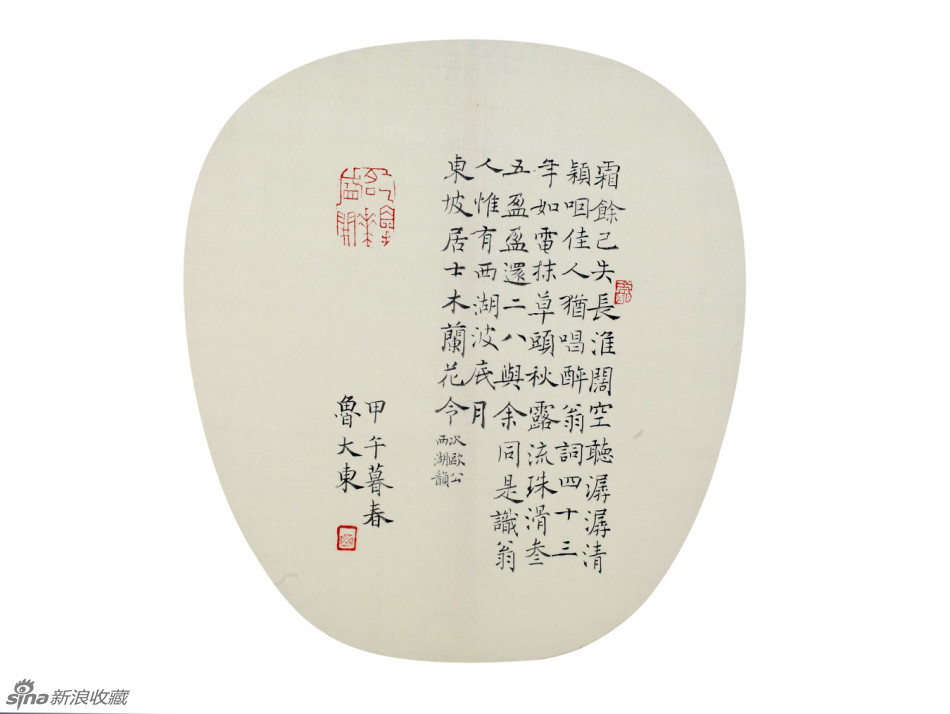 霜餘已失長淮闊空聽潺潺清
穎咽佳人猶唱醉翁詞四十三
年如電抹草頭秋露流珠滑叁
五盈盈還二八與余同是識翁
人惟有西湖波底月
東坡居士木蘭花令
次歐公
西湖韻
甲午暮春
魯大東
sina新浪收藏